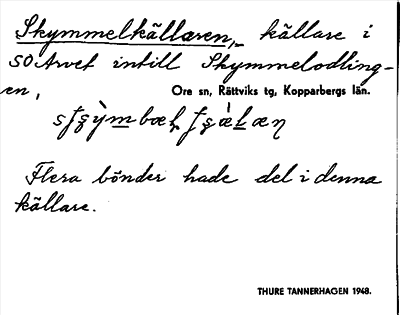 Skymmelkällaren, källare i
SO Arvet intill Skymmelodling-
en,
Ore sn, Rättviks tg, Kopparbergs län.
Flera bönder hade del i denna
källare.
THURE TANNERHAGEN 1948.